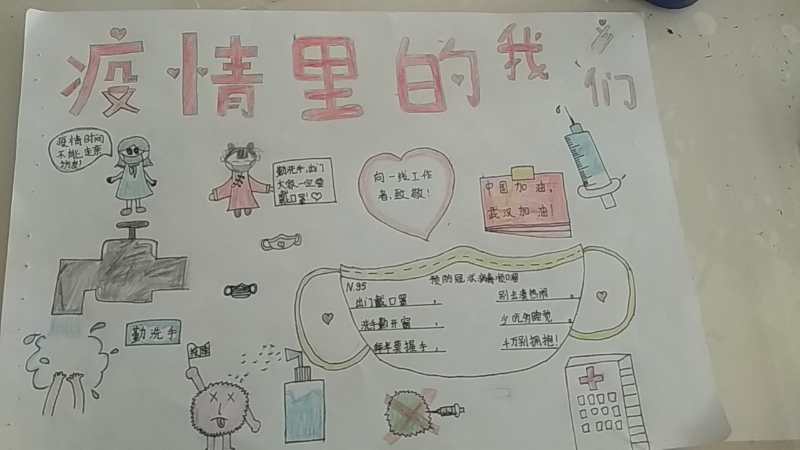 疫情里的我们
疫情时间
不能走亲
访友!
勤洗手,出门
大家一定要
戴口罩!
向一线工作
者,致敬!
中国加油,
武汉加油!
N.95
预防冠状病毒顺口溜
出门戴口罩,
别去凑热闹。
洗手勤开窗,
少吃多睡觉。
千万别拥抱!
勤洗手